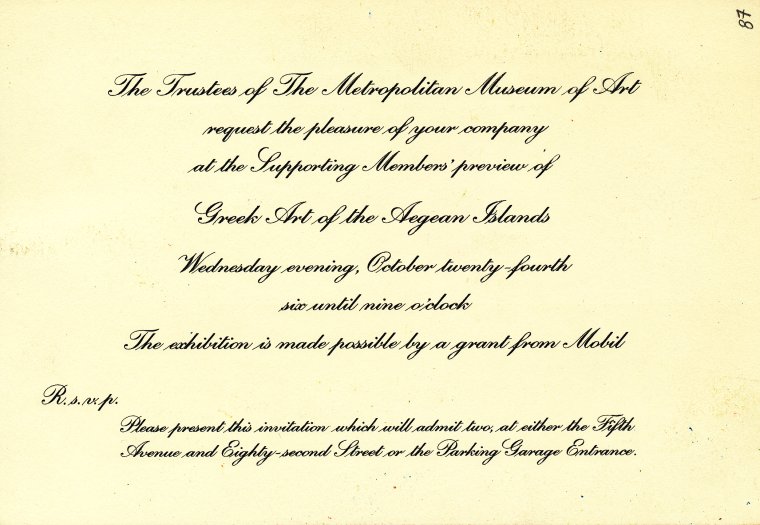 87
The Trustees of The Metropolitan Museum of Art
request the pleasure of your company
at the Supporting Members' preview of
Greek Art of the Aegean Islands
Wednesday evening, October twenty-fourth
six until nine o'clock
The exhibition is made possible by a grant from Mobil
R.s.v.p.
Please present this invitation which will admit two, at either the Fifth
Avenue and Eighty-second Street or the Parking Garage Entrance.